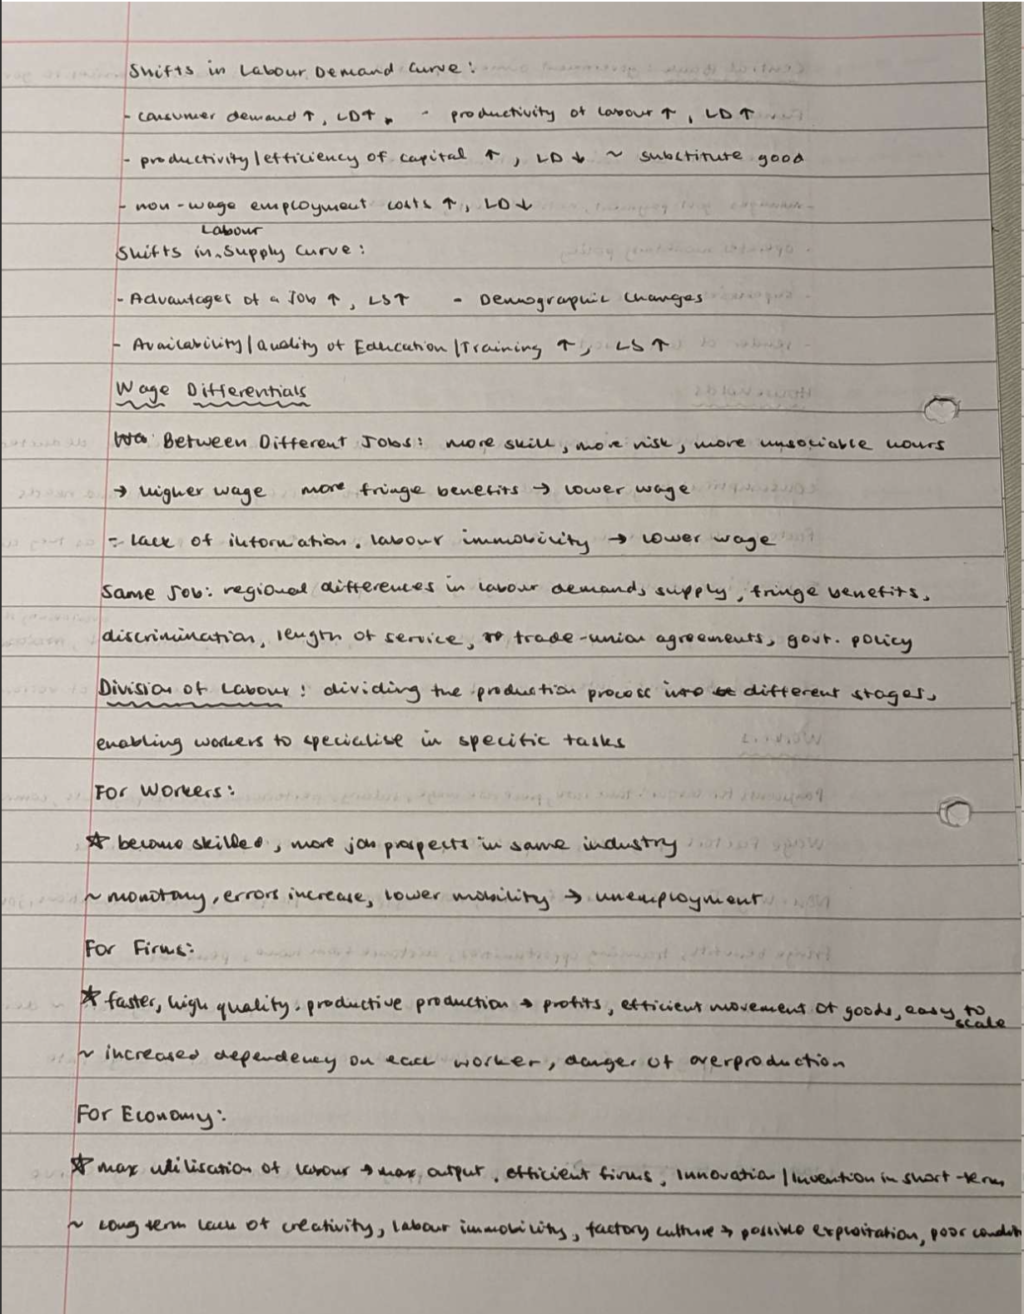 Shifts in Labour Demand Curve:
- consumer demand ↑, LD↑. - productivity of labour ↑, LD ↑
- productivity/efficiency of capital ↑, LD ↓ ~ substitute good
- non-wage employment costs ↑, LD↓
Labour
Shifts in Supply Curve:
- Advantages of a Job ↑, LS↑ - Demographic Changes
- Availability/Quality of Education/Training ↑, LS ↑
Wage Differentials
Between Different Jobs: more skill, more risk, more unsociable hours
→ higher wage more fringe benefits → lower wage
- lack of information, labour immobility → lower wage
Same Job: regional differences in labour demand, supply, fringe benefits,
discrimination, length of service, trade-union agreements, govt. policy
Division of Labour: dividing the production process into different stages,
enabling workers to specialise in specific tasks
For Workers:
☆ become skilled, more job prospects in same industry
~ monotony, errors increase, lower mobility → unemployment
For Firms:
☆ faster, high quality, productive production → profits, efficient movement of goods, easy to
scale
~ increased dependency on each worker, danger of overproduction
For Economy:
☆ max utilisation of labour → max output, efficient firms, Innovation/Invention in short-term
~ long term lack of creativity, labour immobility, factory culture → possible exploitation, poor